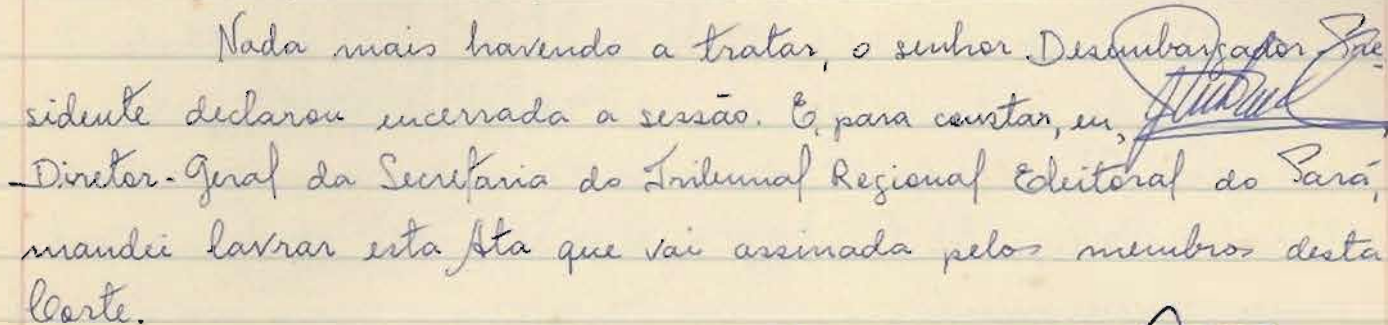 Nada mais havendo a tratar, o senhor Desembargador Pre-
sidente declarou encerrada a sessão. E, para constar, eu,
Diretor-Geral da Secretaria do Tribunal Regional Eleitoral do Pará,
mandei lavrar esta Ata que vai assinada pelos membros desta
Corte.